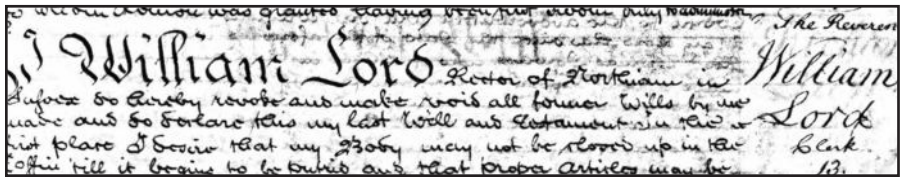 to whom Admon was granted having been first sworn duly to administer
I William Lord Rector of Northiam in
Sussex do hereby revoke and make void all former Wills by me
made and do declare this my last Will and Testament In the
first place I desire that my Body may not be closed up in the
Coffin till it begins to be putrid and that proper Articles may be
The Reverend
William
Lord
Clerk.
13.